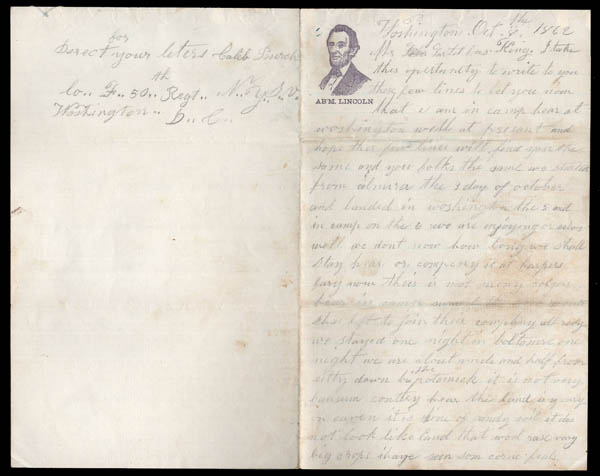 for
Derect your leters Caleb
Co. F. 50th Regt. N.Y.S.V.
Washington D. C.
ABM. LINCOLN
Washington Oct. 8th 1862
Mr King. I take
this opertunety to write to you
these few lines to let you now
that I am in camp hear at
washington well at present and
hope these few lines will find you the
same and your folks the same we started
from elmira the 3 day of october
and landed in washington the 5 and
in camp on the 6 we are enjoying
well we dont now how long we shall
stay hear or company is at harpers
fary now their is not meny
hear in camp
left to join their company all redy
we stayed one night in boltemore one
night we are about and half from
citty down by the potomick it is not very
contry hear the land
on even it is kind of sandy soil it does
not look like land that wod rase very
big crops I have seen som corne